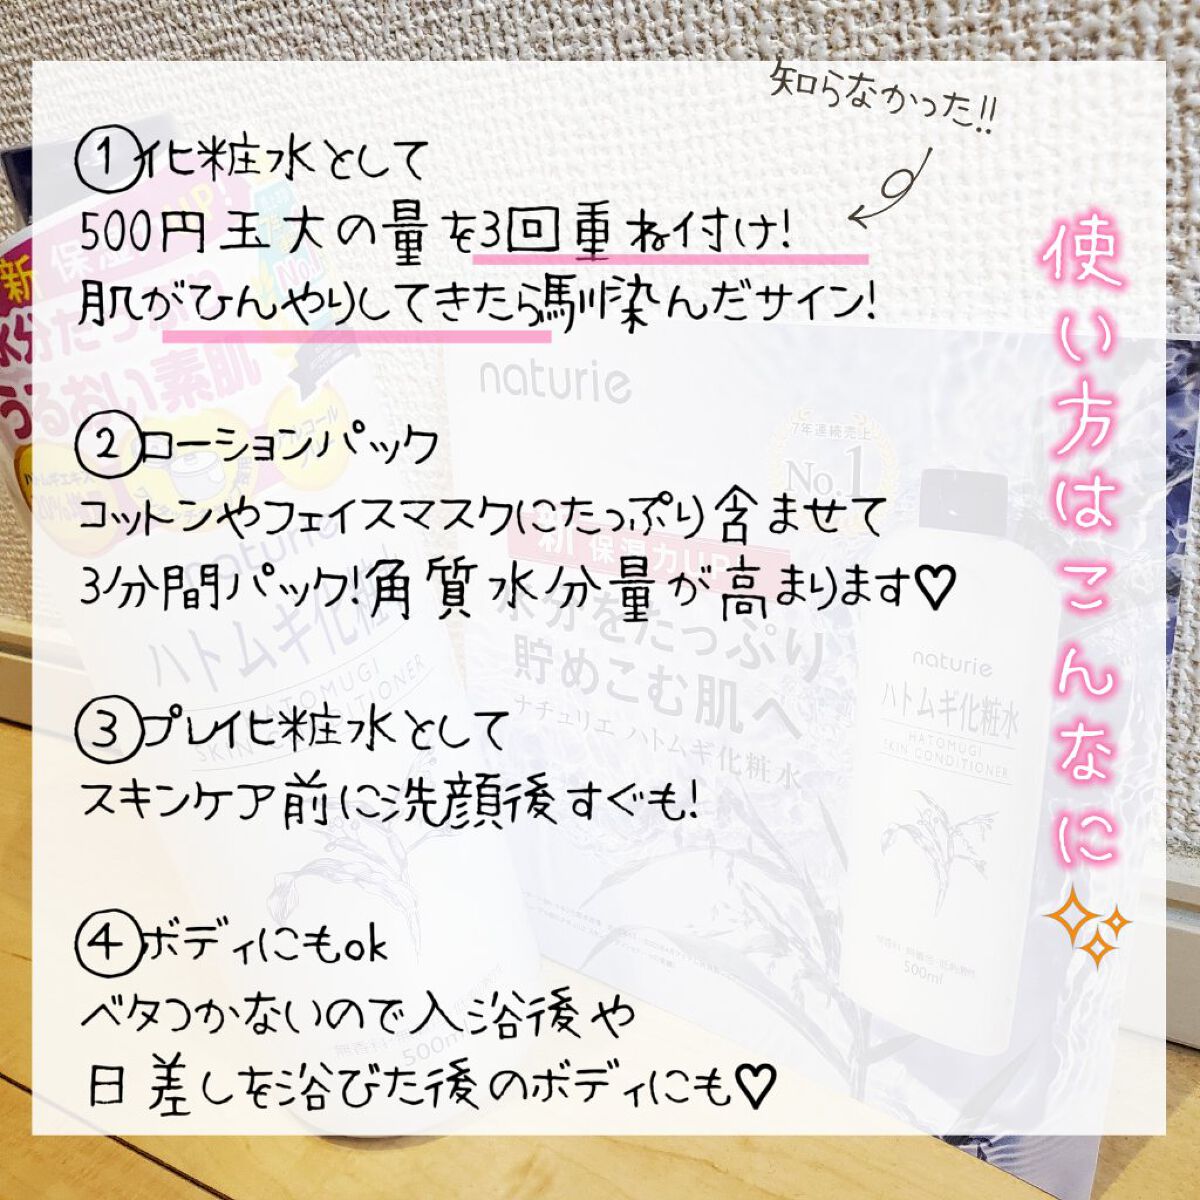 知らなかった!!
①化粧水として
500円玉大の量を3回重ね付け!
肌がひんやりしてきたら馴染んだサイン!
②ローションパック
コットンやフェイスマスクにたっぷり含ませて
3分間パック!角質水分量が高まります♡
③プレ化粧水として
スキンケア前に洗顔後すぐも!
④ボディにもok
ベタつかないので入浴後や
日差しを浴びた後のボディにも♡
使い方はこんなに
新 保湿力UP!
水分たっぷり
うるおい素肌
naturie
ハトムギ化粧水
HATOMUGI
SKIN CONDITIONER
500ml
naturie
7年連続売上
No.1
新 保湿力UP
水分をたっぷり
貯めこむ肌へ
ナチュリエ ハトムギ化粧水
naturie
ハトムギ化粧水
HATOMUGI
SKIN CONDITIONER
500ml